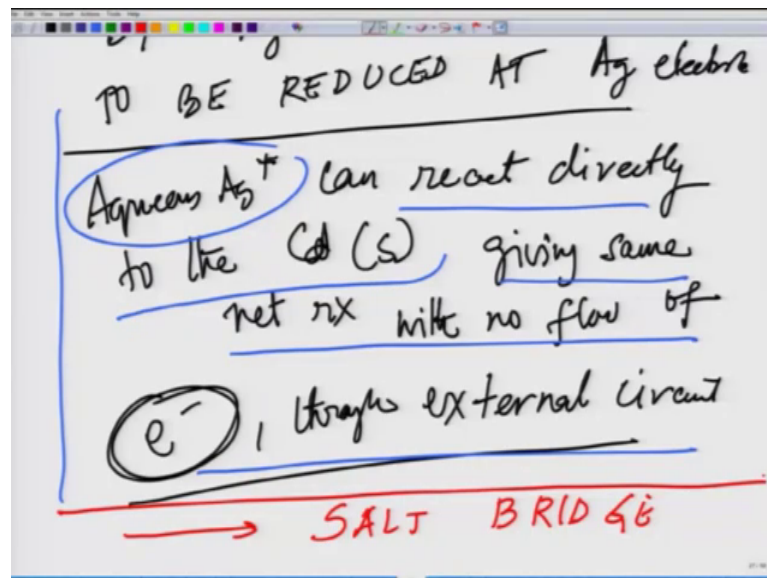 TO BE REDUCED AT Ag electrode
Aqueous Ag+ can react directly
to the Cd (s) giving same
net rx with no flow of
e-, through external circuit
→ SALT BRIDGE